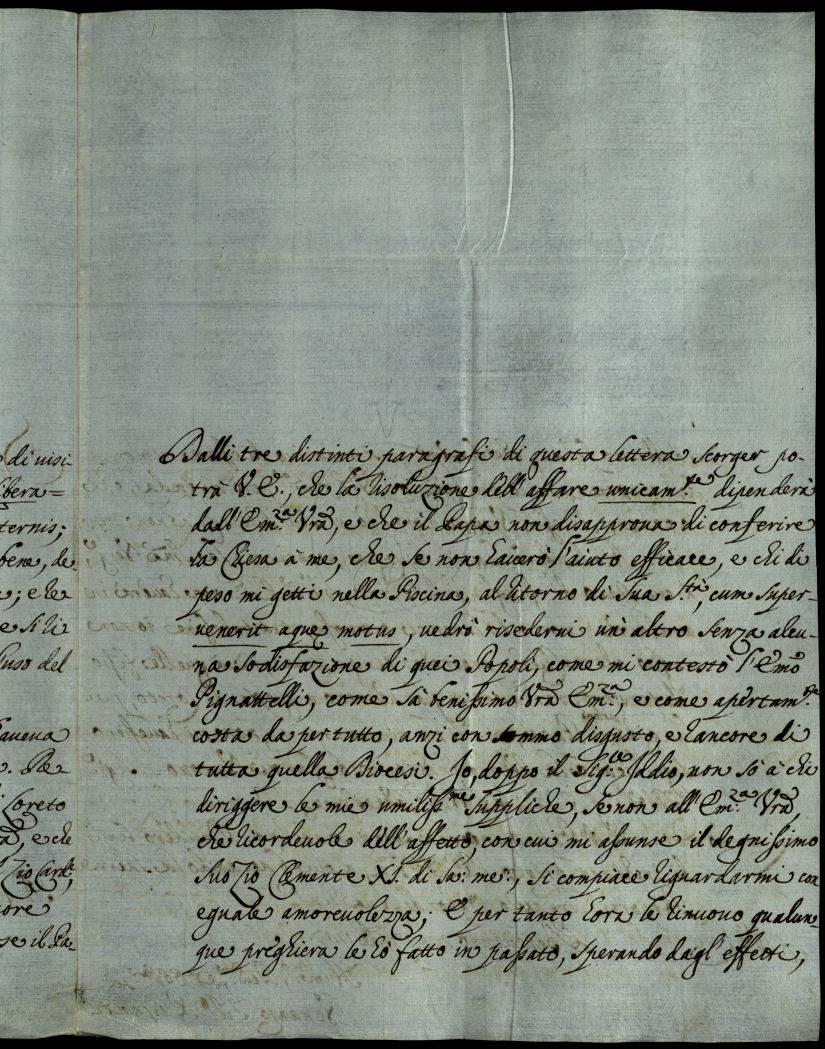 di visi-
bera=
ternis;
bene, de-
; e che
e si ti
luso del
aveva
. Re-
Loreto
, e che
Zio Card.e
ore
se il Pa-
Dalli tre distinti paragrafi di questa lettera scorger po-
trà V. E., che la risoluzione dell'affare unicam.te dipenderà
dall'Em.za Vrã, e che il Papa non disapprova di conferire
la Chiesa à me, che se non haverò l'aiuto efficace, e chi di
peso mi getti nella Piscina, al ritorno di Sua S.tà, cum super-
venerit aque motus, vedrò risedervi un'altro senza alcu-
na sodisfazione di quei Popoli, come mi contestò l'Emõ
Pignattelli, come sà benissimo Vrã Em.za, e come apertam.te
costa da per tutto, anzi con sommo disgusto, e rancore di
tutta quella Diocesi. Io, doppo il Sig.re Iddio, non sò à chi
diriggere le mie umiliss.me suppliche, se non all'Em.za Vrã,
che ricordevole dell'affetto, con cui mi assunse il degnissimo
suo Zio Clemente XI. di Sa: me:, si compiace riguardarmi con
eguale amorevolezza; E per tanto hora le rinuovo qualun-
que preghiera le hò fatto in passato, sperando dagl'effetti,